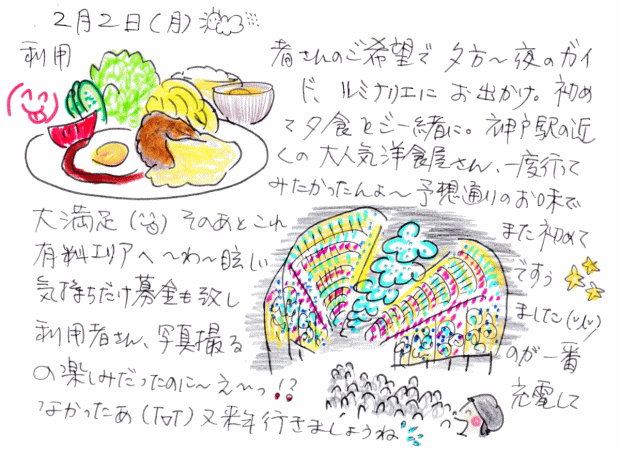 2月2日(月)
利用者さんのご希望で夕方〜夜のガイ
ド、ルミナリエにお出かけ。初め
て夕食をご一緒に。神戸駅の近
くの大人気洋食屋さん、一度行って
みたかったんよ〜予想通りのお味で
大満足 そのあとこれまた初めて
有料エリアへ〜わ〜眩しいですぅ
気持ちだけ募金も致しました
利用者さん、写真撮るのが一番
の楽しみだったのに〜え〜っ!?充電して
なかったあ(ToT)又来年行きましょうね